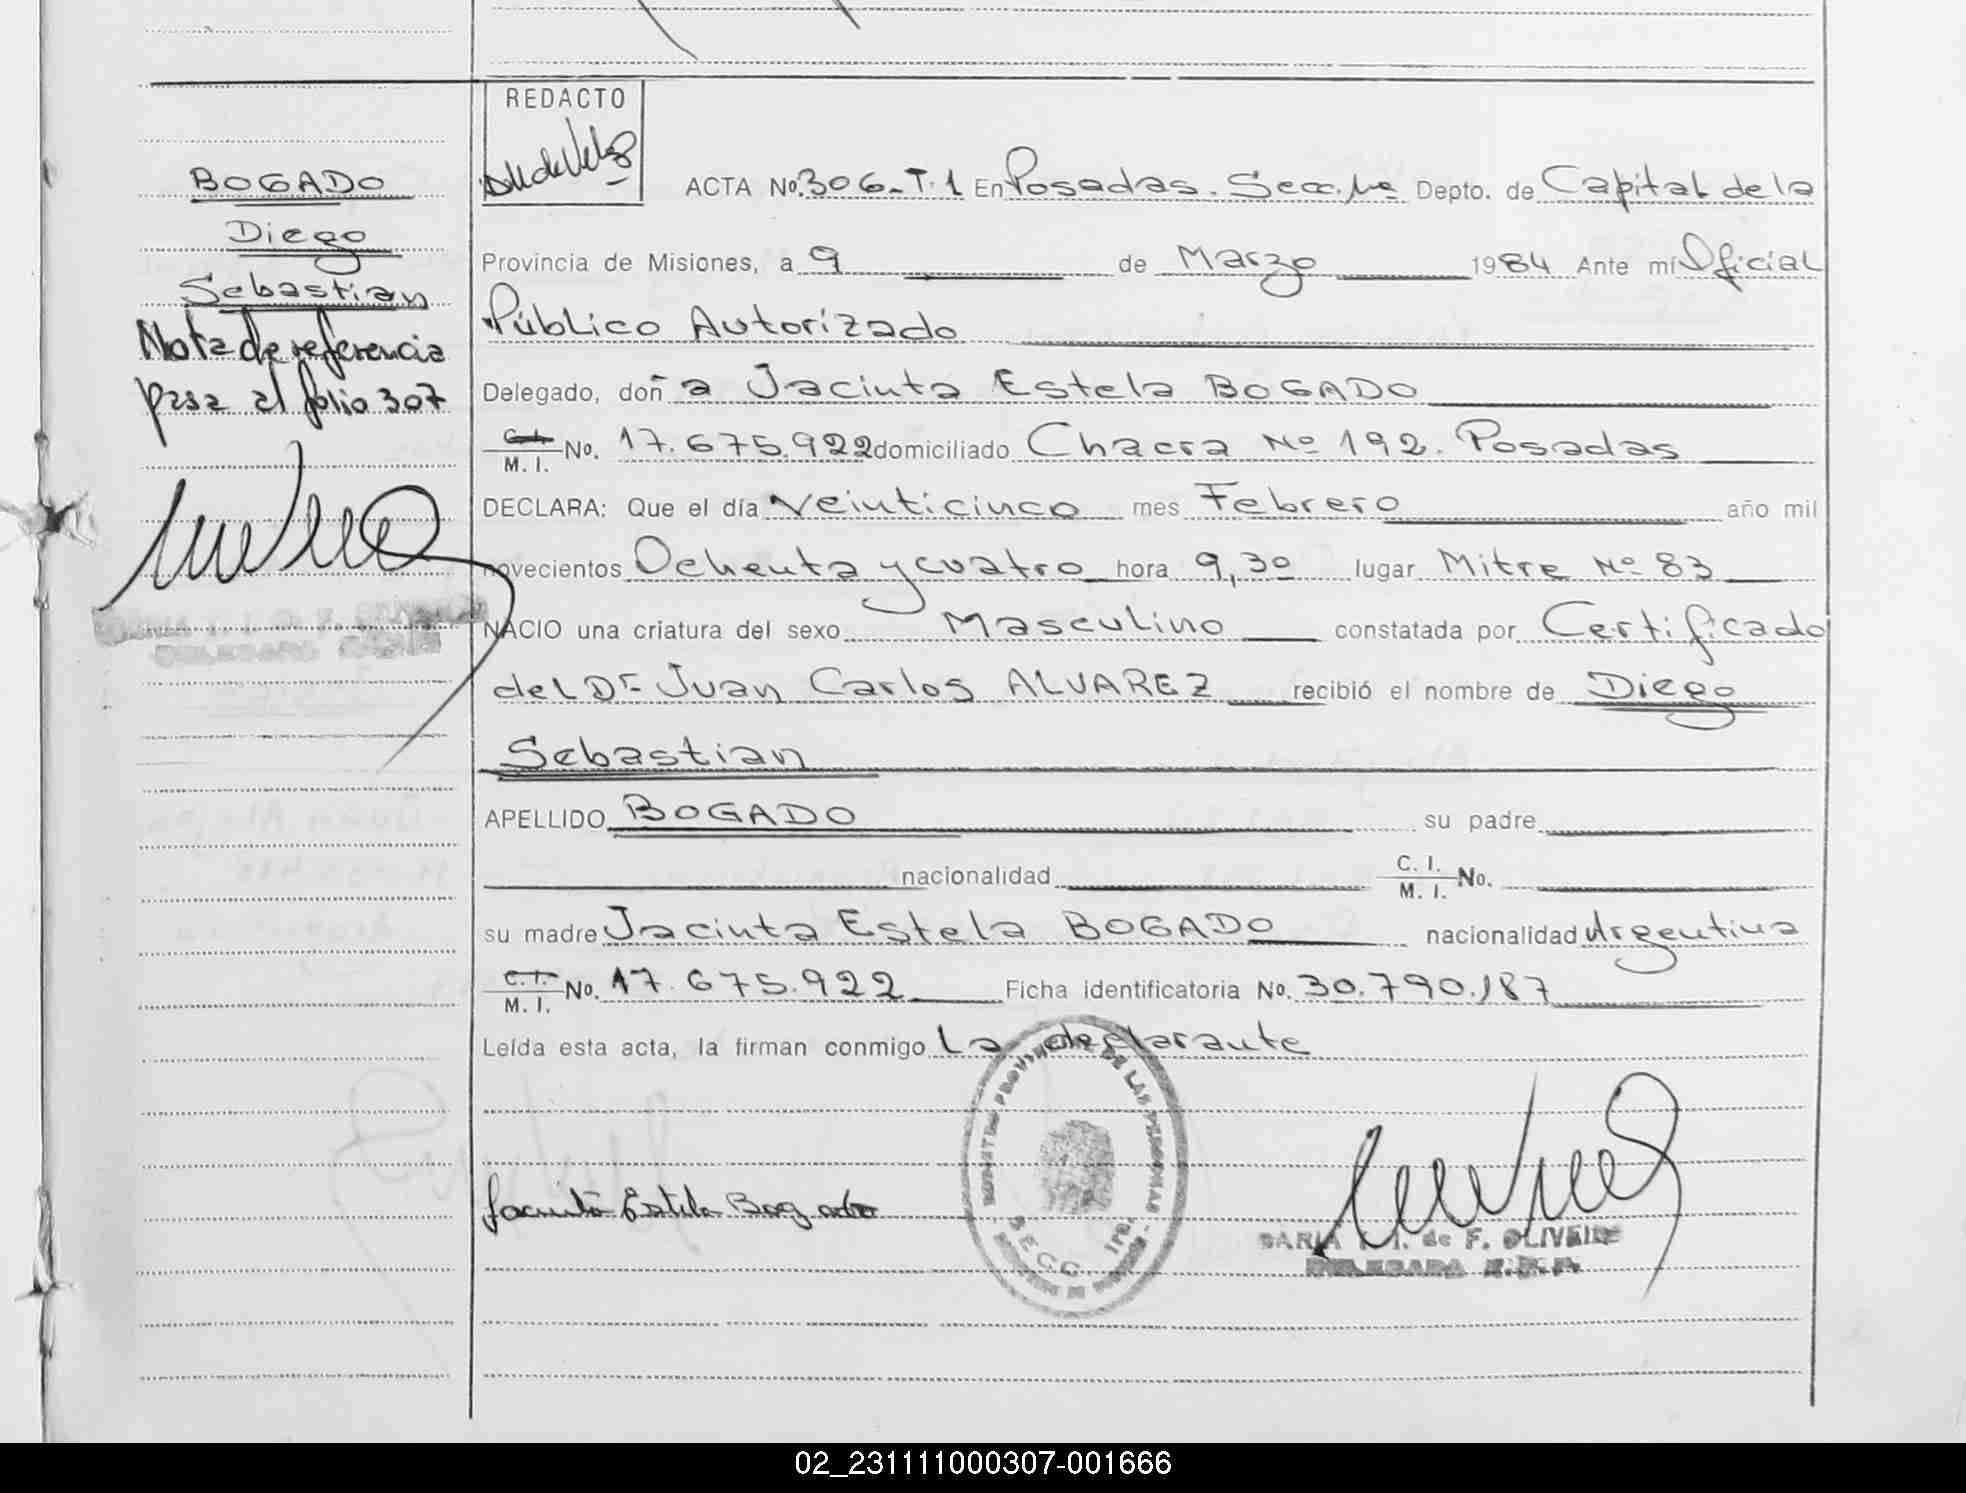 REDACTO
BOGADO
Diego
Sebastian
Nota de referencia
pasa al folio 307
ACTA No. 306-T.1 En Posadas. Secc. 1ra Depto. de Capital de la
Provincia de Misiones, a 9 de Marzo 1984 Ante mí Oficial
Público Autorizado
Delegado, doñ a Jacinta Estela BOGADO
C. I. M. I. No. 17.675.922 domiciliado Chacra Nº 192. Posadas
DECLARA: Que el día Veinticinco mes Febrero año mil
novecientos Ochenta y cuatro hora 9,30 lugar Mitre Nº 83
NACIO una criatura del sexo Masculino constatada por Certificado
del Dr Juan Carlos ALVAREZ recibió el nombre de Diego
Sebastian
APELLIDO BOGADO su padre
nacionalidad C. I. M. I. No.
su madre Jacinta Estela BOGADO nacionalidad Argentina
C. I. M. I. No. 17.675.922 Ficha identificatoria No. 30.790.187
Leída esta acta, la firman conmigo La declarante
PROVINCIAL DE LAS PERSONAS
SECC. 1ra.
Jacinta Estela Bogado
de F. OLIVEIRA
DELEGADA
02_231111000307-001666